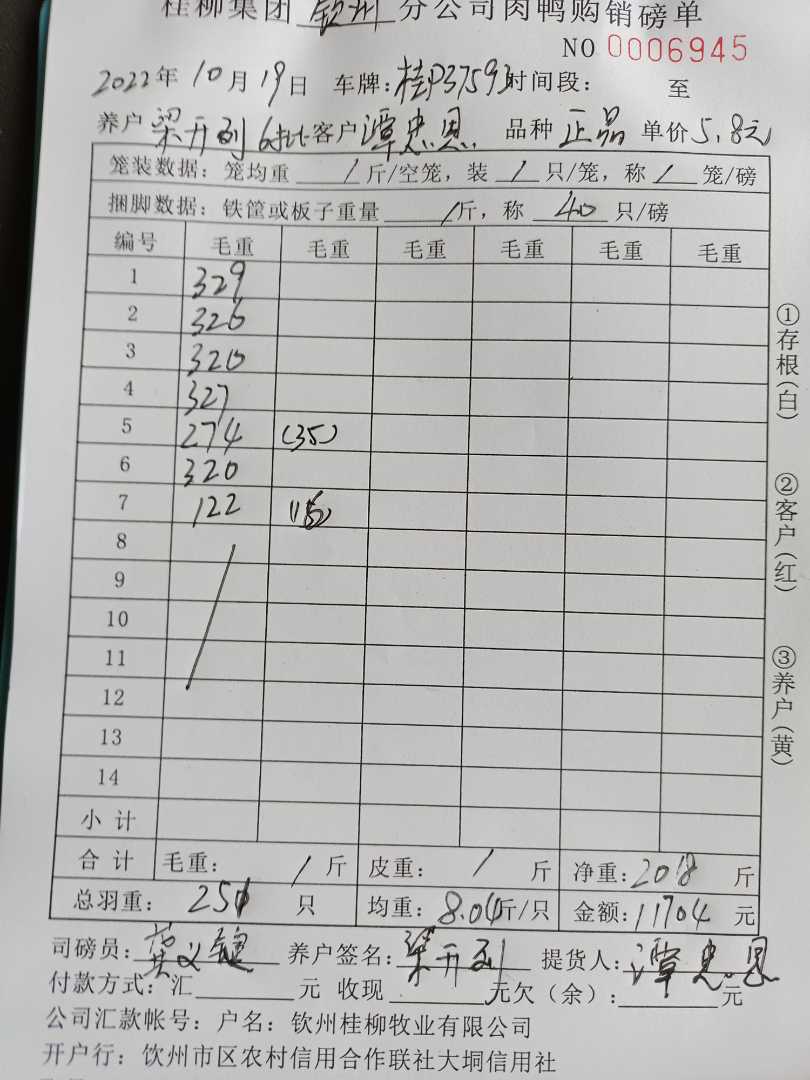 桂柳集团 钦州 分公司肉鸭购销磅单
NO 0006945
2022年 10月19日 车牌:桂P37593 时间段: 至
养户 梁开列 6批 客户 潭忠恩 品种 正品 单价 5.8元
笼装数据: 笼均重 / 斤/空笼, 装 / 只/笼, 称 / 笼/磅
捆脚数据: 铁筐或板子重量 / 斤, 称 40 只/磅
编号 毛重 毛重 毛重 毛重 毛重 毛重
1 329
2 326
3 320
4 327
5 274 (35)
6 320
7 122
8
9
10
11
12
13
14
小计
合计 毛重: / 斤 皮重: / 斤 净重: 2018 斤
总羽重: 251 只 均重: 8.04斤/只 金额: 11704 元
司磅员: 养户签名: 梁开列 提货人: 潭忠恩
付款方式: 汇 元 收现 元欠(余): 元
公司汇款帐号: 户名: 钦州桂柳牧业有限公司
开户行: 钦州市区农村信用合作联社大垌信用社
①存根(白)
②客户(红)
③养户(黄)